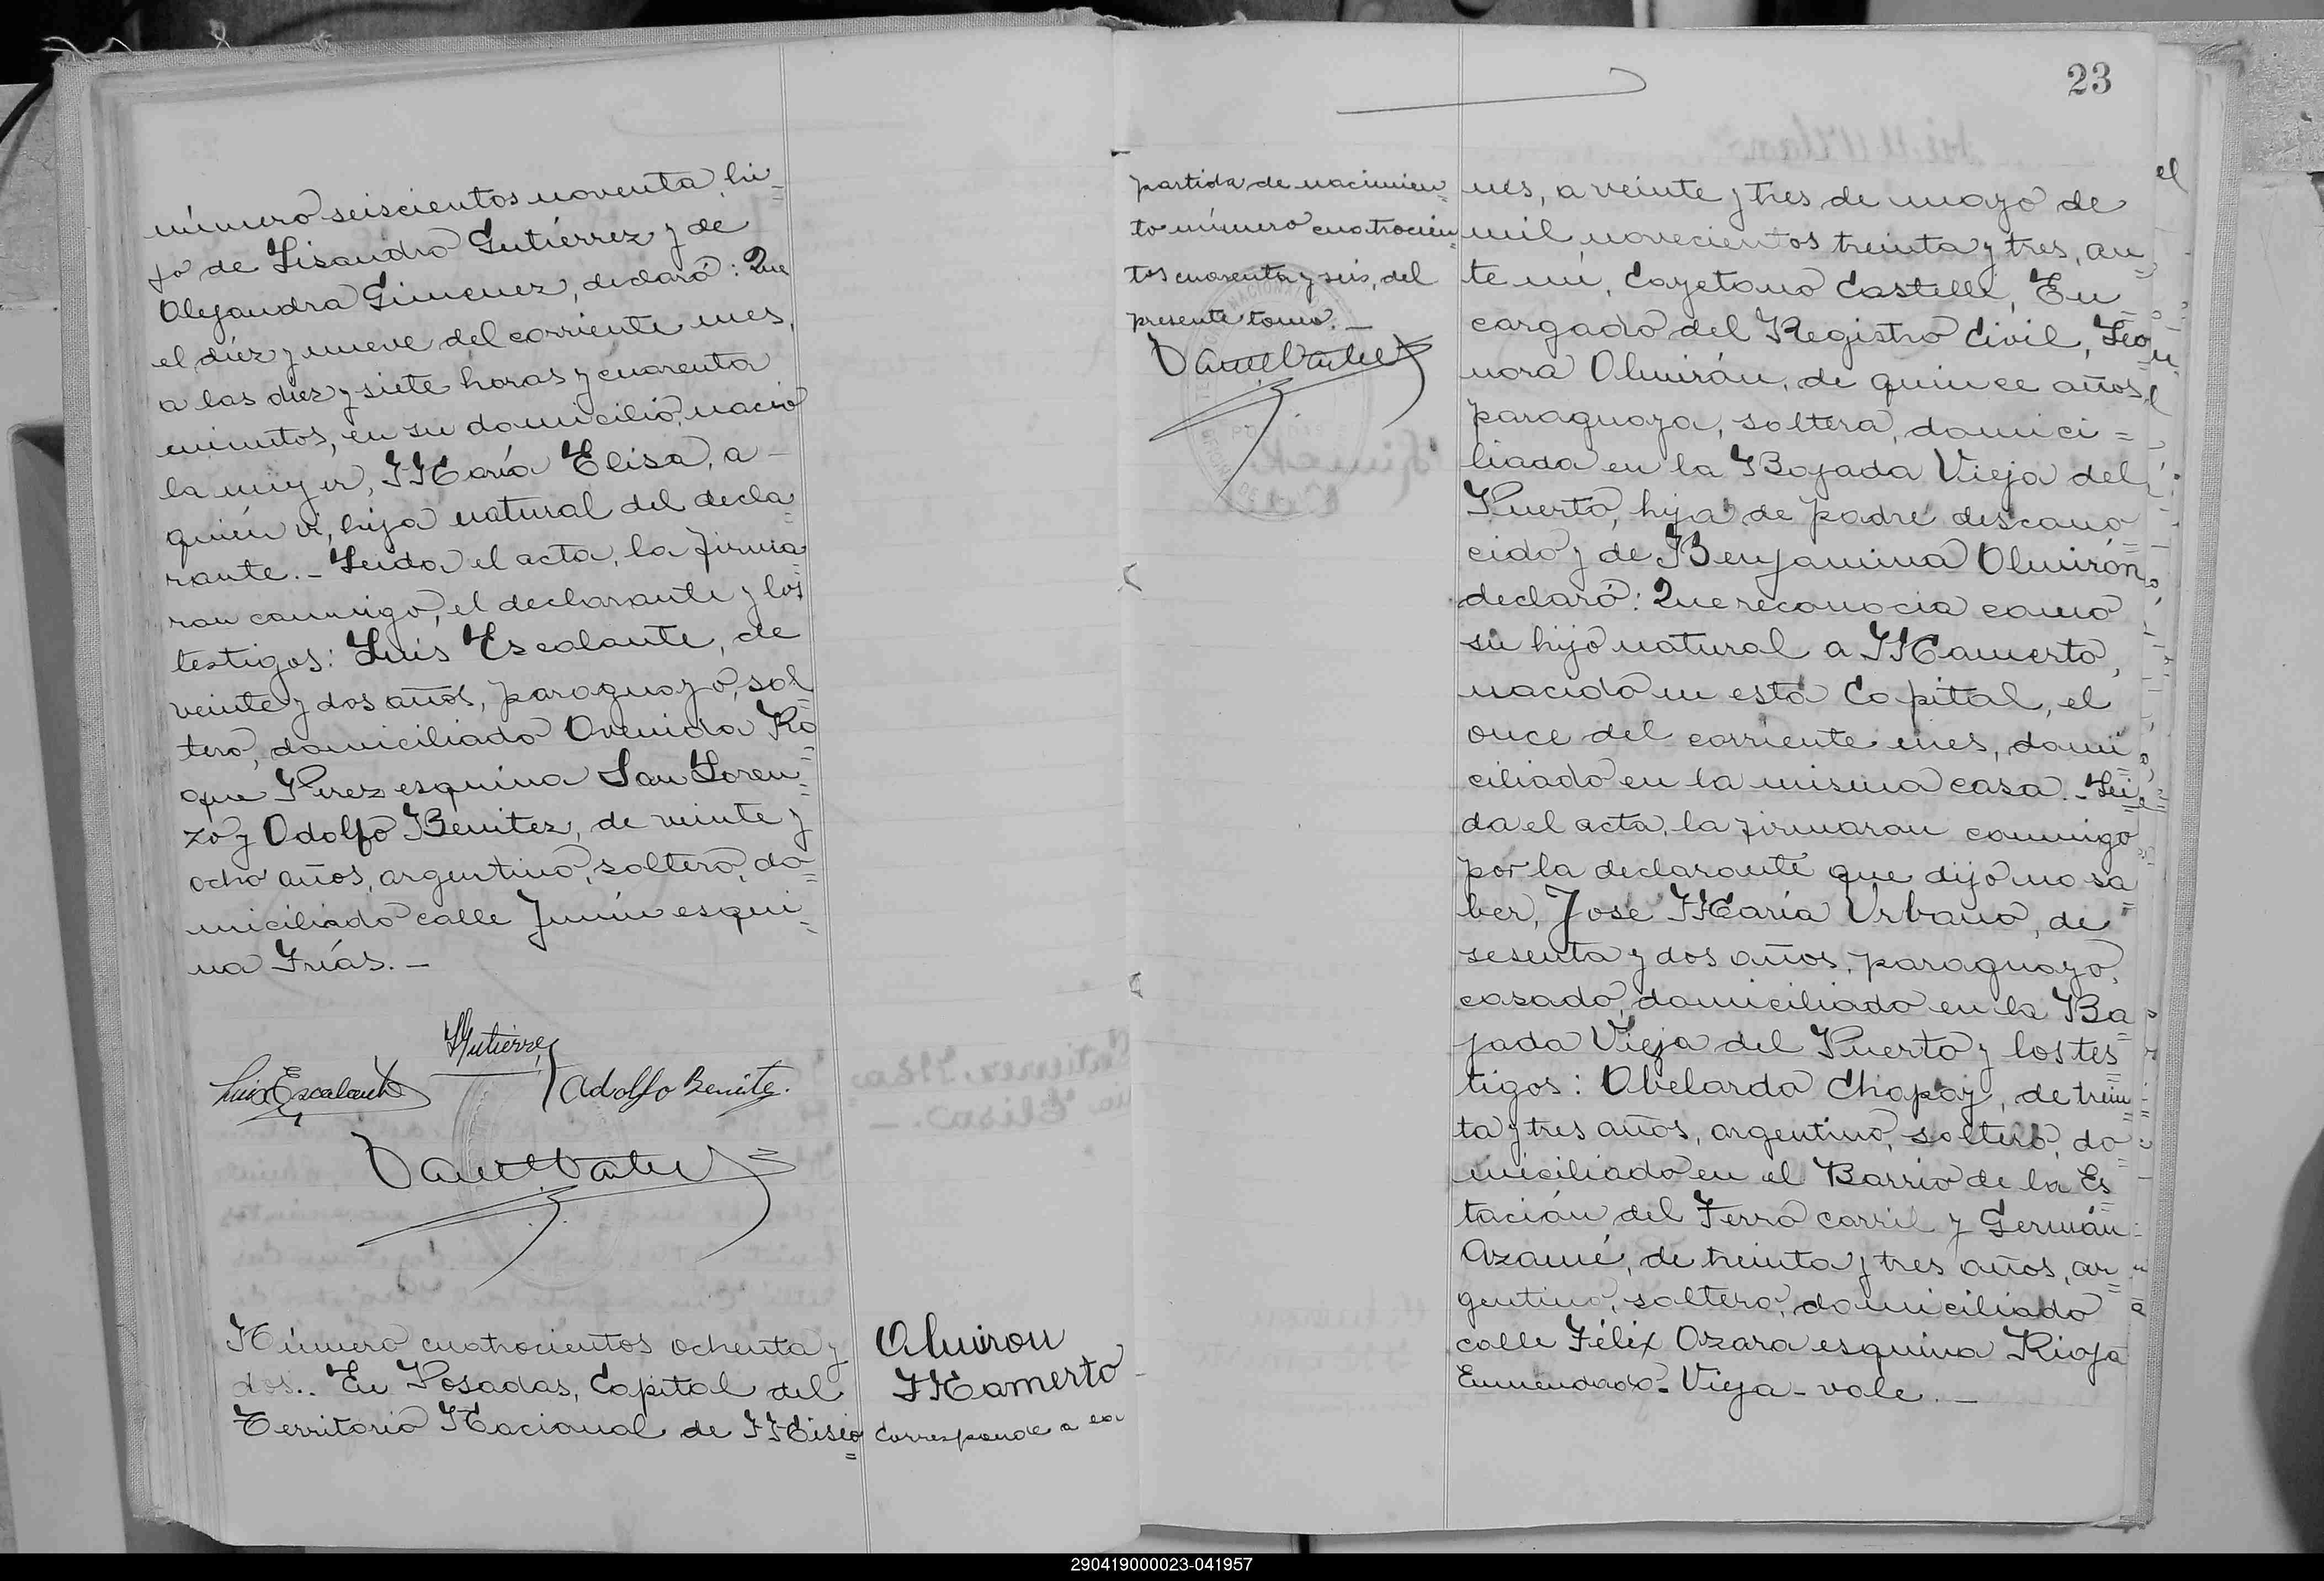 número seiscientos noventa, hi=
jo de Lisandro Gutiérrez y de
Alejandra Gimenez, declaró: Que
el diez y nueve del corriente mes,
a las diez y siete horas y cuarenta
minutos, en su domicilio, nació
la mujer, María Elisa, a-
quién vi, hija natural del decla=
rante.- Leida el acta, la firma=
ron conmigo, el declarante y los
testigos: Luis Escalante, de
veinte y dos años, paraguayo, sol=
tero, domiciliado Avenida Ro=
que Perez esquina San Loren=
zo y Adolfo Benitez, de veinte y
ocho años, argentino, soltero, do=
miciliado calle Junín esqui=
na Frías.-
Gutierrez
Luis Escalante
Adolfo Benitez.
Número cuatrocientos ochenta y
dos.. En Posadas, Capital del
Territorio Nacional de Misio=
Almiron
Mamerto
Corresponde a la
23
partida de nacimien=
to número cuatrocien=
tos cuarenta y seis, del
presente tomo.-
nes, a veinte y tres de mayo de
mil novecientos treinta y tres, an=
te mí, Cayetano Castelli, En=
cargado del Registro Civil, Leo=
nora Almirón, de quince años,
paraguaya, soltera, domici=
liada en la Bajada Vieja del
Puerto, hija de padre descono=
cido y de Benjamina Almirón,
declaró: Que reconocia como
su hijo natural a Mamerto,
nacido en esta Capital, el
once del corriente mes, domi=
ciliado en la misma casa.- Lei=
da el acta, la firmaron conmigo
por la declarante que dijo no sa=
ber, José María Urbano, de
sesenta y dos años, paraguayo,
casado, domiciliado en la Ba=
jada Vieja del Puerto y los tes=
tigos: Abelardo Chapay, de trein=
ta y tres años, argentino, soltero, do=
miciliado en el Barrio de la Es=
tación del Ferro carril y Germán
Azamé, de treinta y tres años, ar=
gentino, soltero, domiciliado
calle Félix Azara esquina Rioja
Enmendado - Vieja - vale.-
290419000023-041957